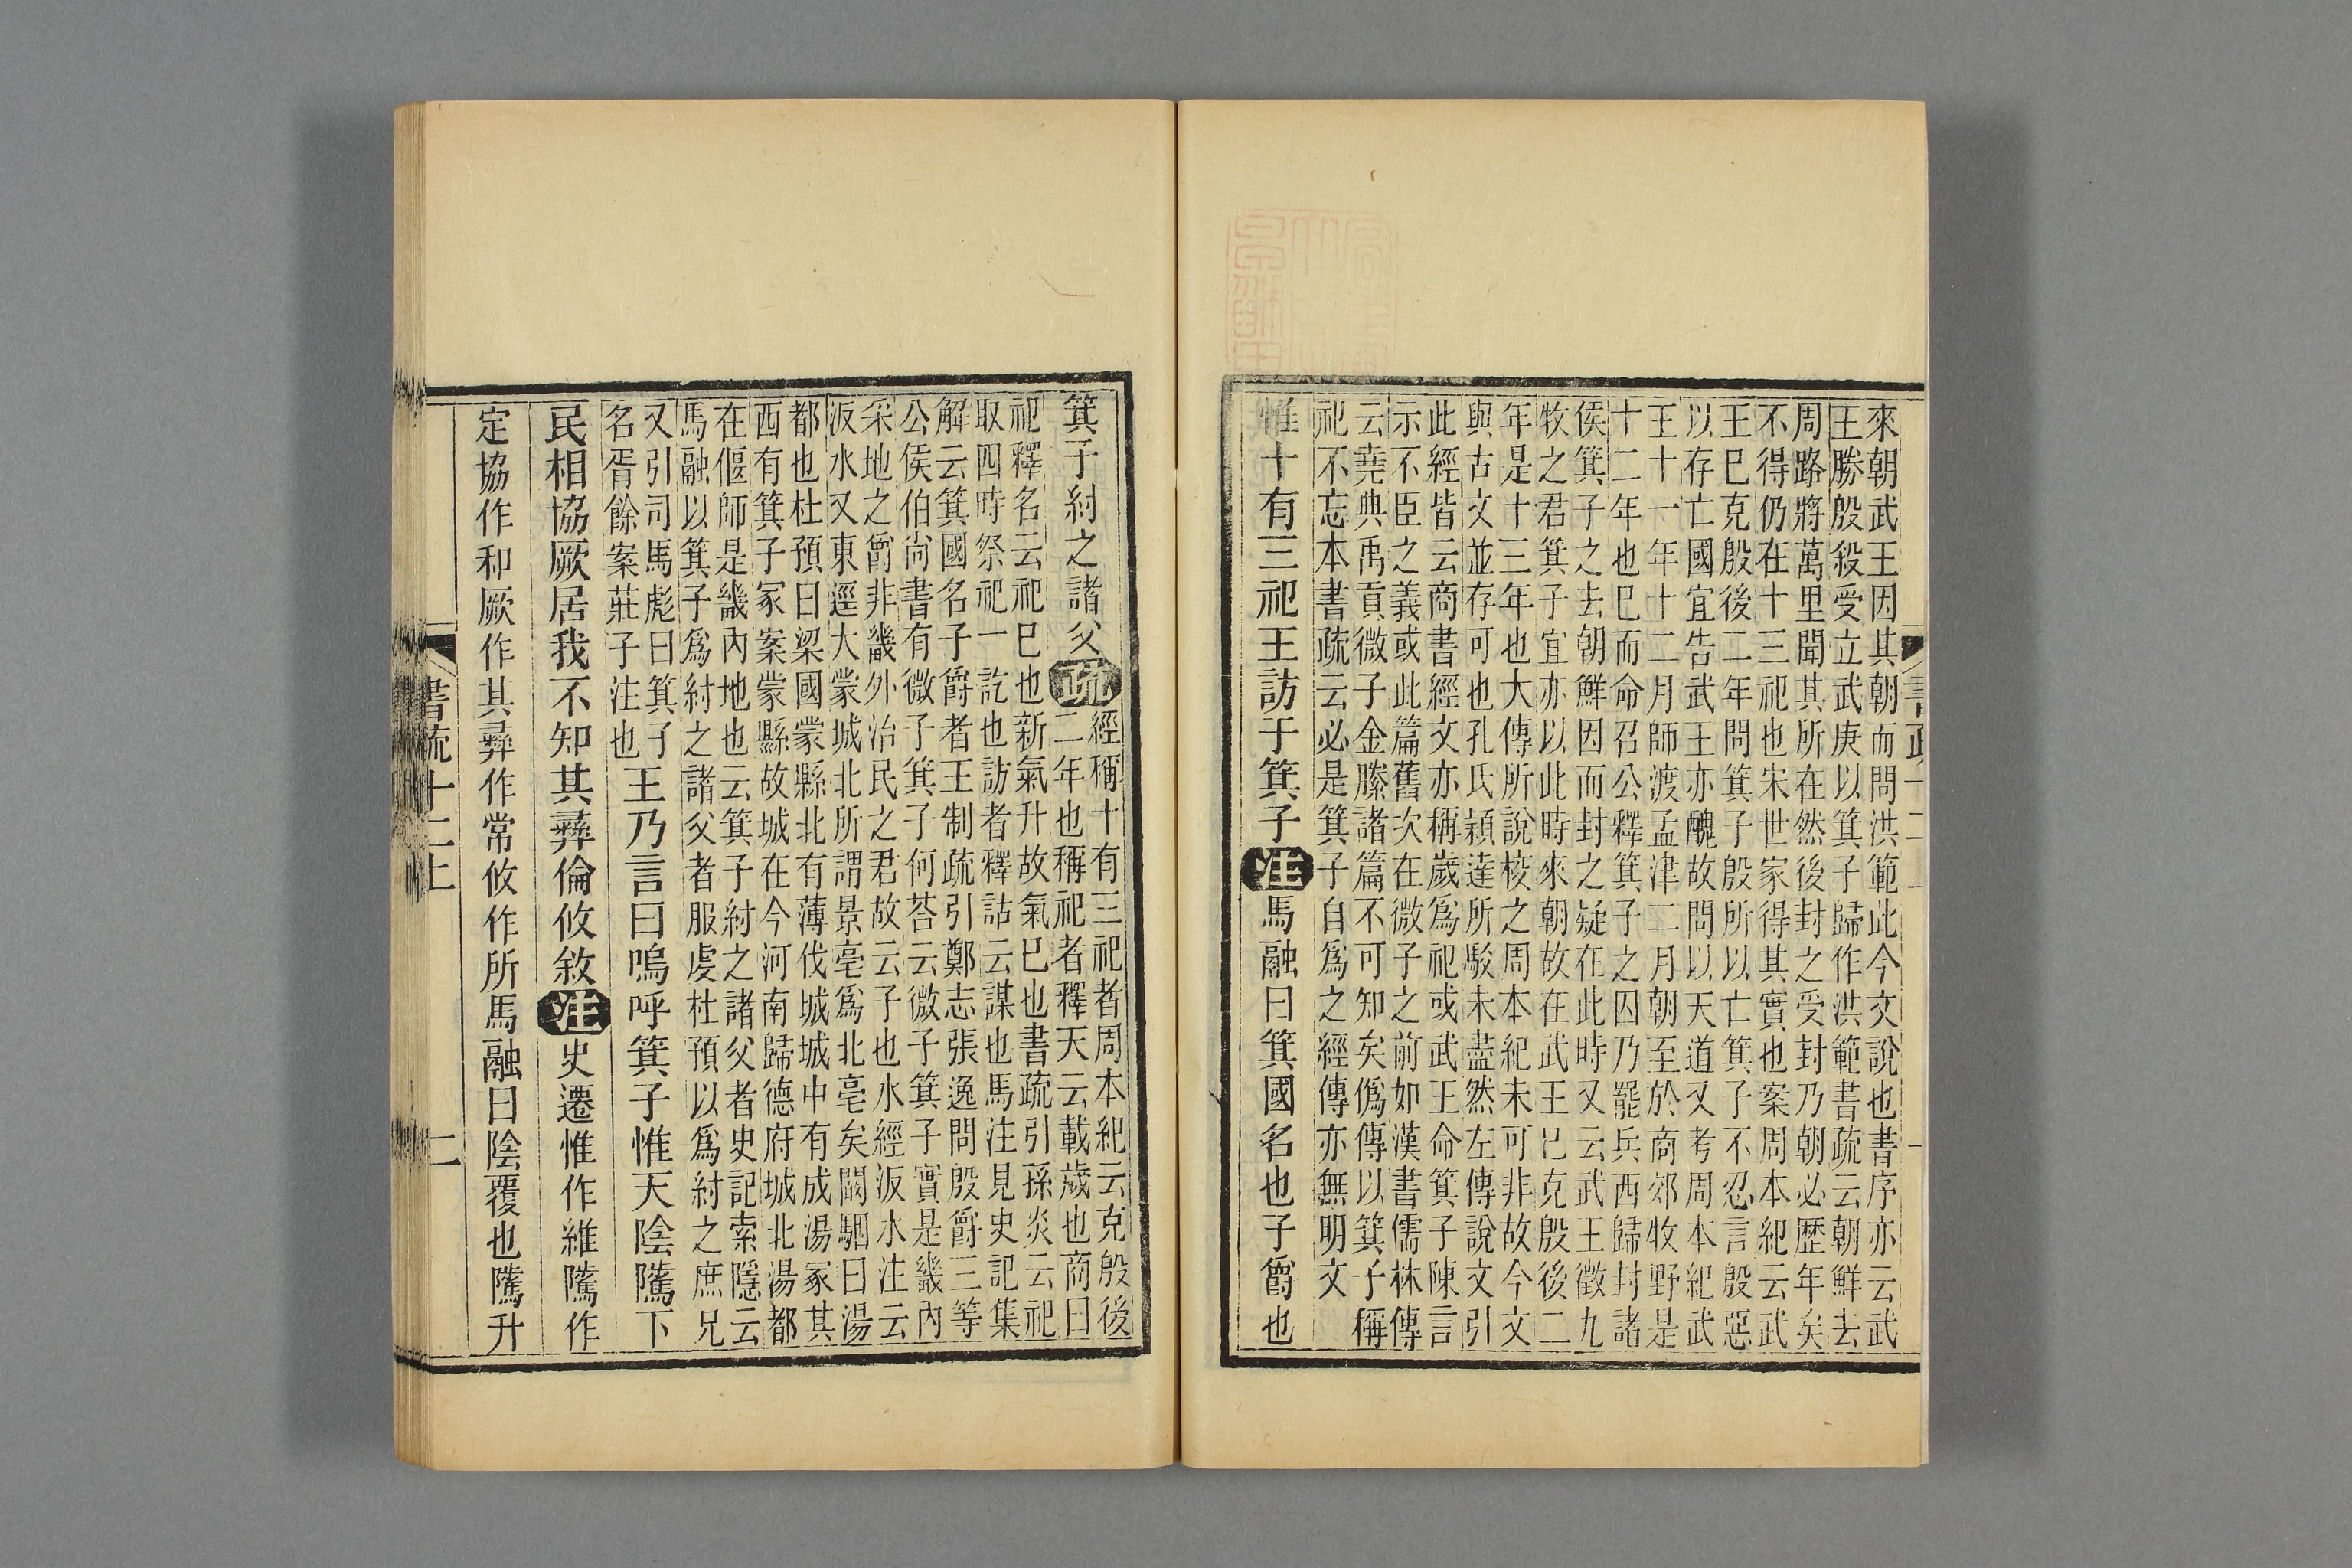 來朝武王因其朝而問洪範此今文說也書序亦云武
王勝殷殺受立武庚以箕子歸作洪範書疏云朝鮮去
周路將萬里聞其所在然後封之受封乃朝必歷年矣
不得仍在十三祀也宋世家得其實也案周本紀云武
王巳克殷後二年問箕子殷所以亡箕子不忍言殷惡
以存亡國宜告武王亦醜故問以天道又考周本紀武
王十一年十二月師渡孟津二月朝至於商郊牧野是
十二年也巳而命召公釋箕子之囚乃罷兵西歸封諸
侯箕子之去朝鮮因而封之疑在此時又云武王徵九
牧之君箕子宜亦以此時來朝故在武王巳克殷後二
年是十三年也大傳所說校之周本紀未可非故今文
與古文並存可也孔氏穎達所駁未盡然左傳說文引
此經皆云商書經文亦稱歲爲祀或武王命箕子陳言
示不臣之義或此篇舊次在微子之前如漢書儒林傳
云堯典禹貢微子金縢諸篇不可知矣僞傳以箕子稱
祀不忘本書疏云必是箕子自爲之經傳亦無明文
惟十有三祀王訪于箕子注馬融曰箕國名也子爵也
書疏十二上
箕子紂之諸父疏
經稱十有三祀者周本紀云克殷後
二年也稱祀者釋天云載歲也商曰
祀釋名云祀巳也新氣升故氣巳也書疏引孫炎云祀
取四時祭祀一訖也訪者釋詁云謀也馬注見史記集
解云箕國名子爵者王制疏引鄭志張逸問殷爵三等
公侯伯尚書有微子箕子何荅云微子箕子實是畿內
采地之爵非畿外治民之君故云子也水經汳水注云
汳水又東逕大蒙城北所謂景亳爲北亳矣闞駰曰湯
都也杜預曰梁國蒙縣北有薄伐城城中有成湯冢其
西有箕子冢案蒙縣故城在今河南歸德府城北湯都
在偃師是畿內地也云箕子紂之諸父者史記索隱云
馬融以箕子爲紂之諸父者服虔杜預以爲紂之庶兄
又引司馬彪曰箕子
名胥餘案莊子注也
王乃言曰嗚呼箕子惟天陰騭下
民相協厥居我不知其彝倫攸敘注史遷惟作維騭作
定協作和厥作其彝作常攸作所馬融曰陰覆也騭升
書疏十二上
二